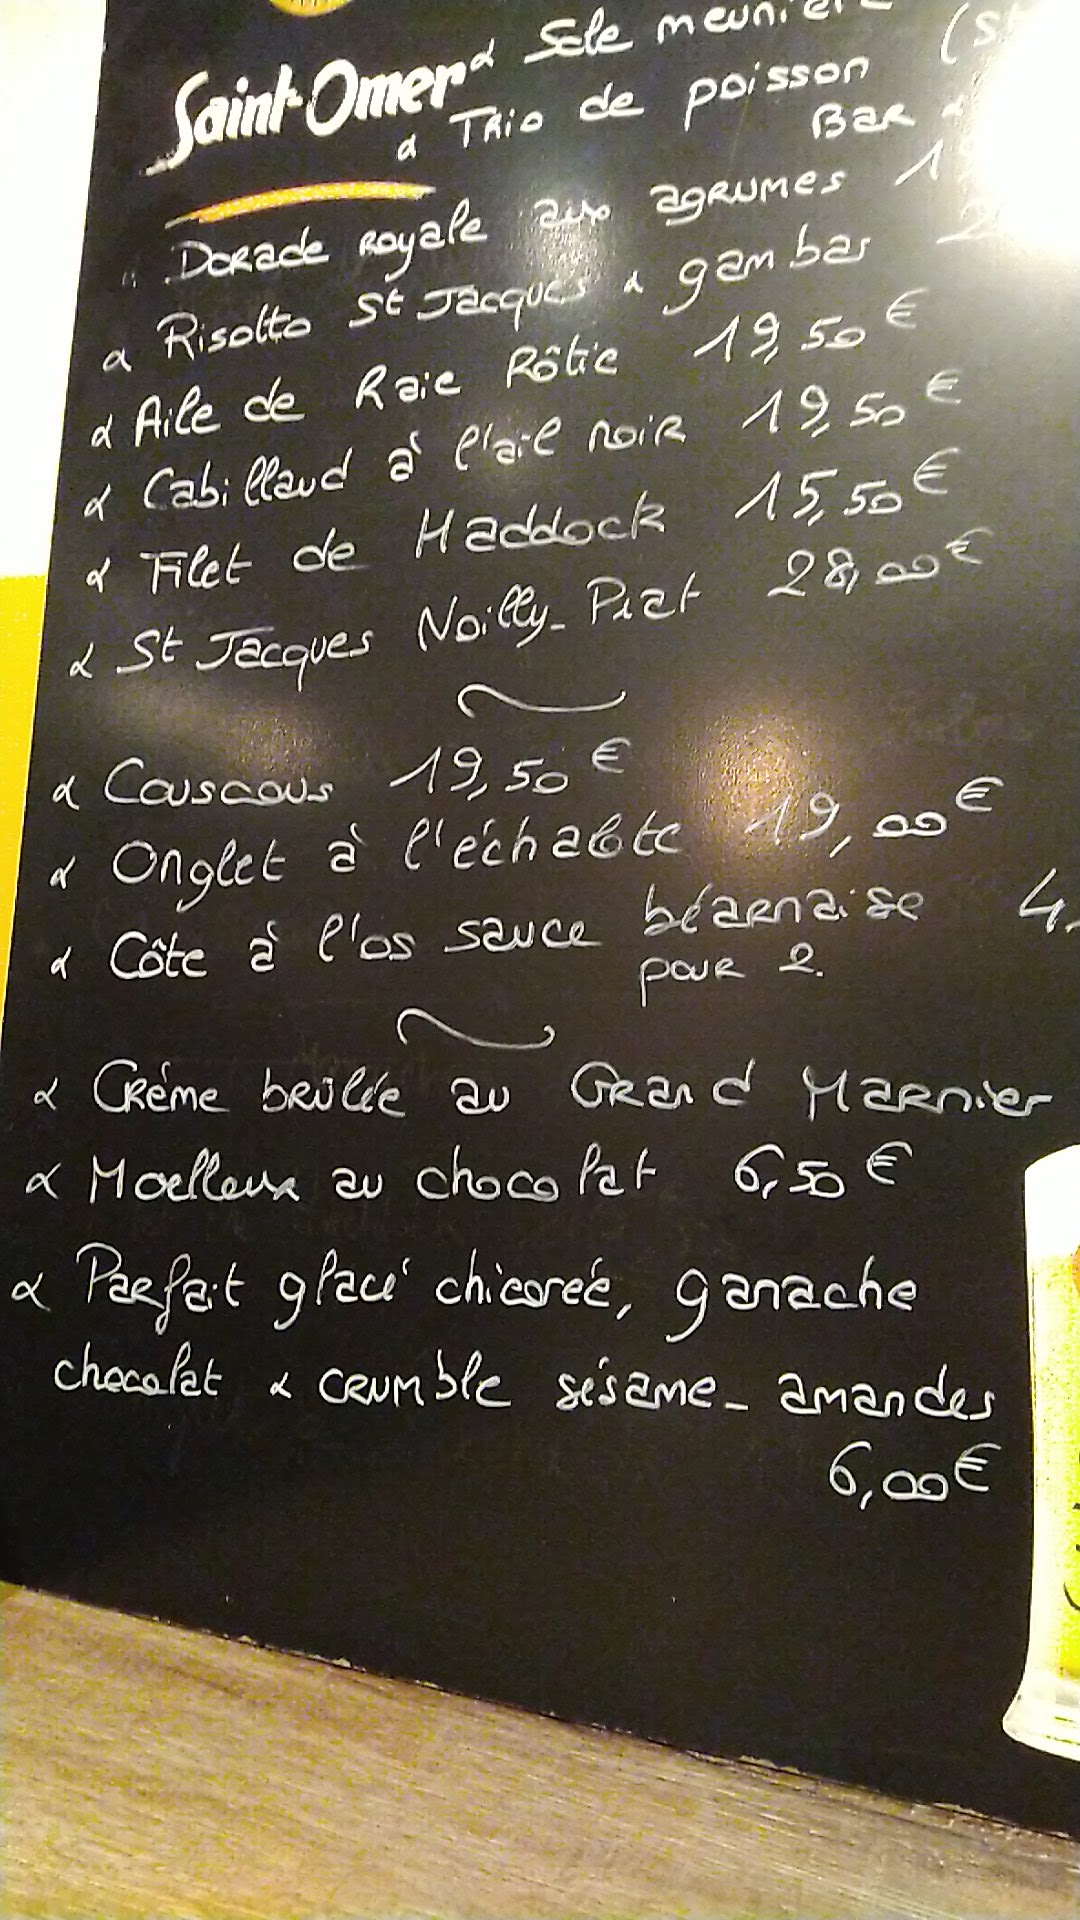 Saint-Omer
Sole
Trio de poisson
Bar
Dorade royale aux agrumes
Risotto St Jacques & gambas
Aile de Raie Rôtie 19,50 €
Cabillaud à l'ail noir 19,50 €
Filet de Haddock 15,50 €
St Jacques Noilly-Prat 28,00 €
Couscous 19,50 €
Onglet à l'échalote 19,00 €
Côte à l'os sauce béarnaise
pour 2.
Crème brûlée au Grand Marnier
Moelleux au chocolat 6,50 €
Parfait glacé chicorée, ganache
chocolat & crumble sésame-amandes
6,00 €